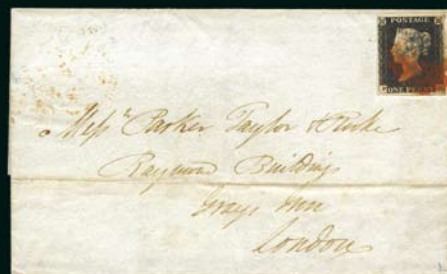 POSTAGE
ONE PENNY
Messrs Parker Taylor & Rooke
Raymond Buildings
Grays Inn
London